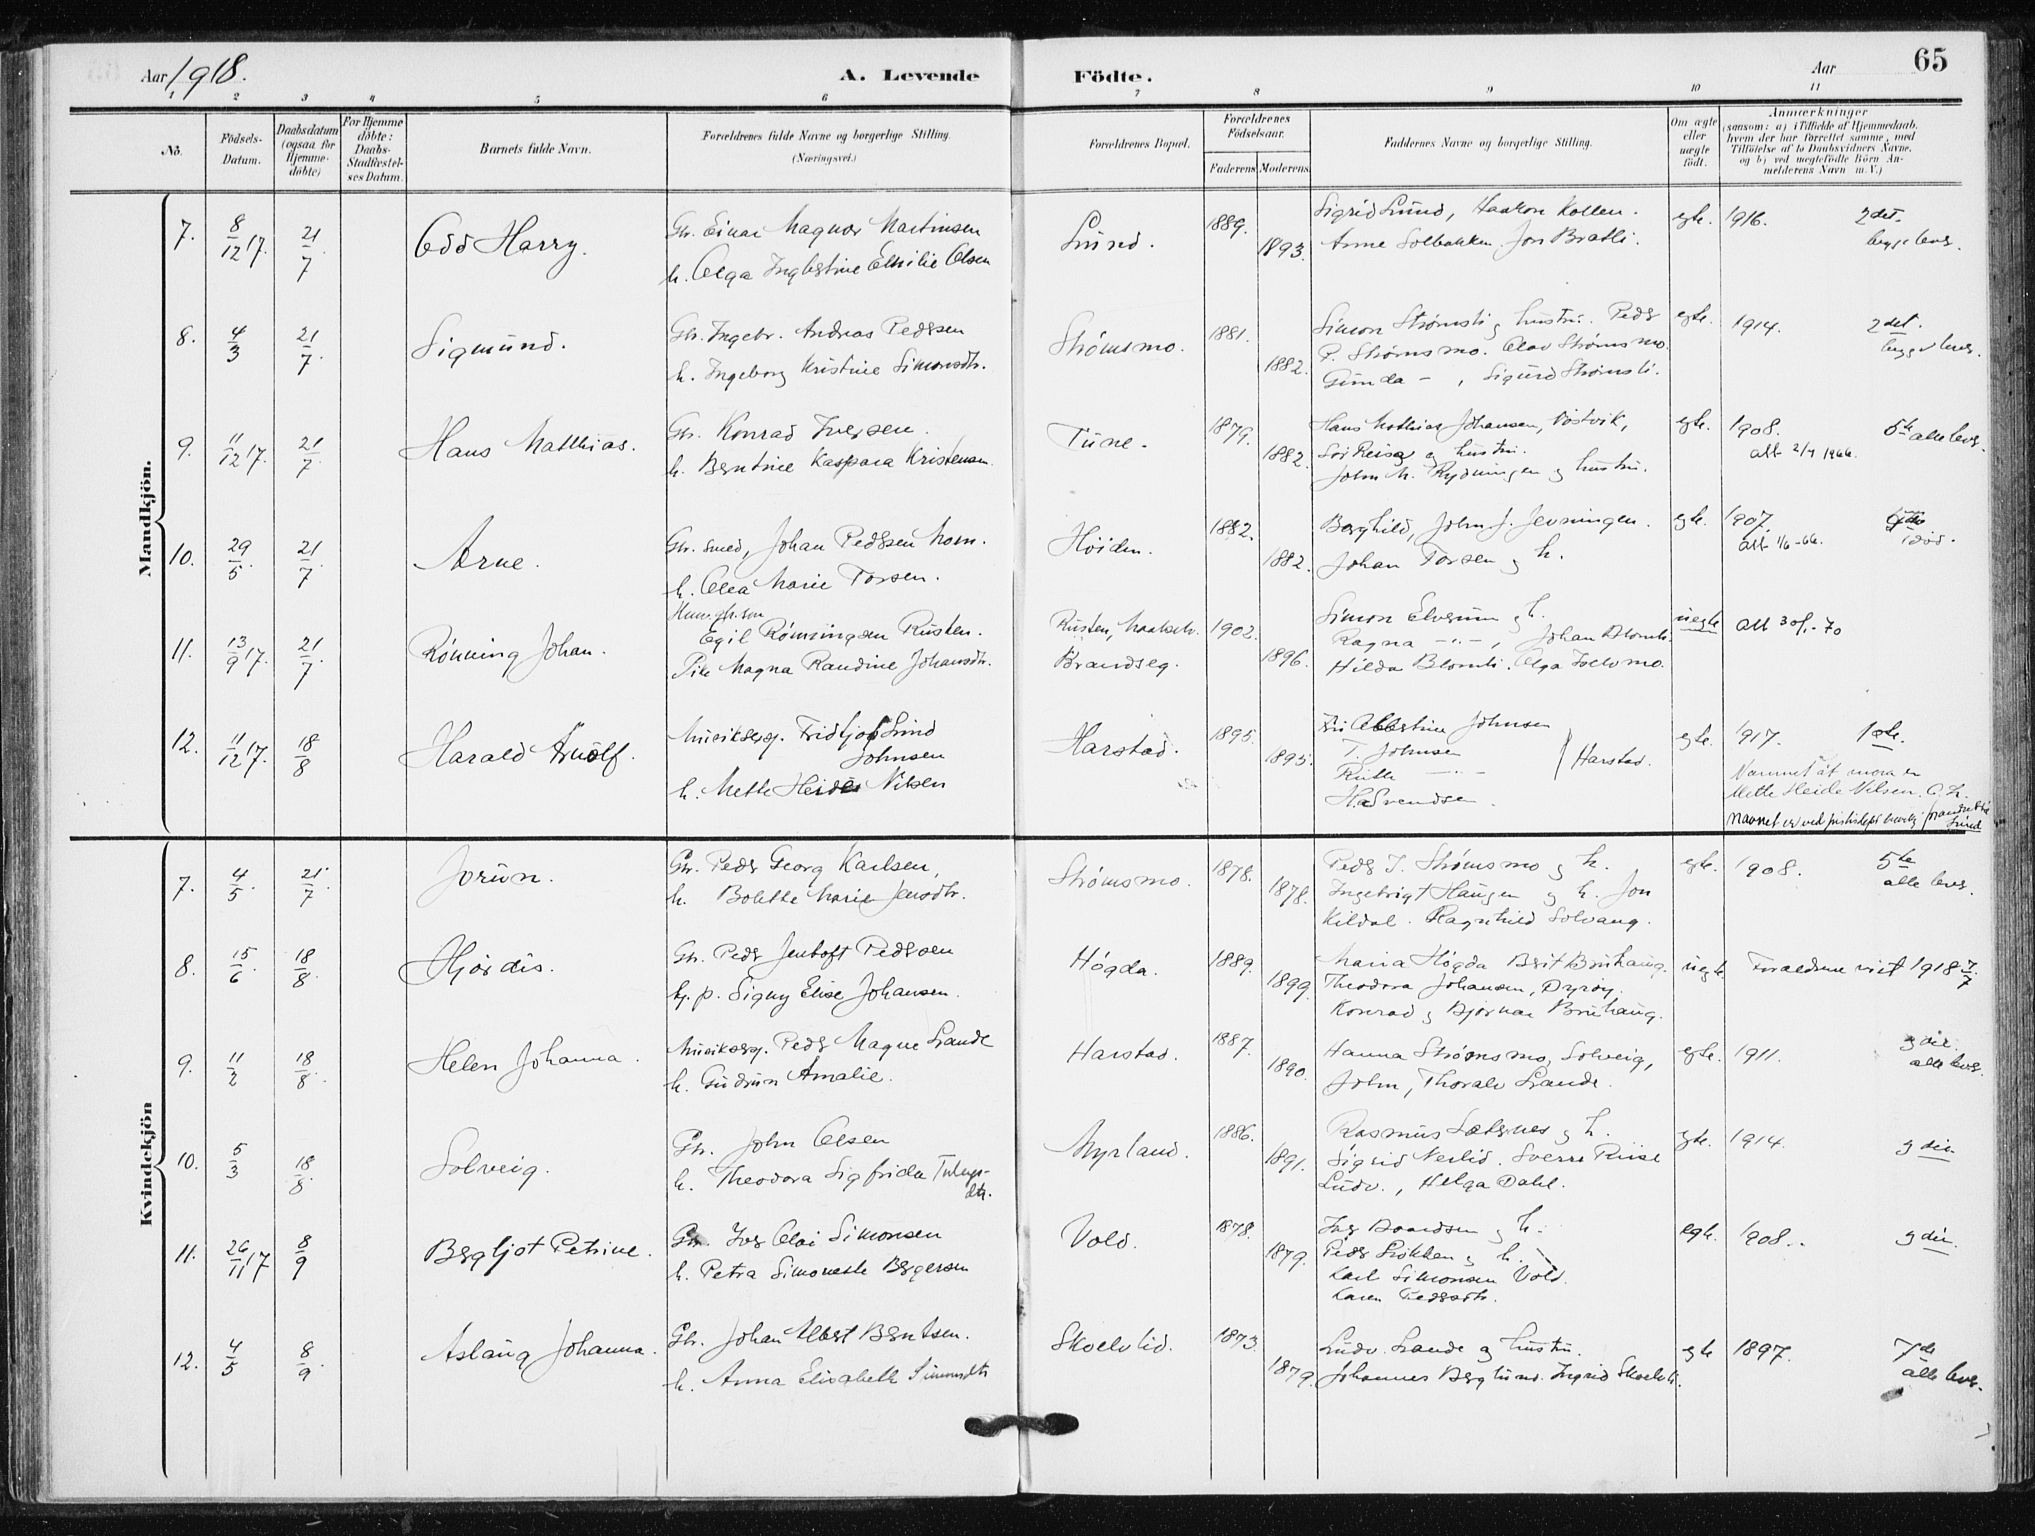 Aar 1918.
A. Levende Födte.
Aar
65
1 2 3 4 5 6 7 8 9 10 11
No.
Födsels-Datum.
Daabsdatum (ogsaa for Hjemme-döbte)
For Hjemme döbte: Daabs-Stadfæstel-ses Datum.
Barnets fulde Navn.
Forældrenes fulde Navne og borgerlige Stilling. (Næringsvei.)
Forældrenes Bopæl.
Forældrenes Födselsaar.
Faderens Moderens.
Faddernes Navne og borgerlige Stilling.
Om ægte eller uægte födt.
Anmærkninger
(saasom: a) i Tilfælde af Hjemmedaab, hvem der har forrettet samme, med Tilföielse af to Daabsvidners Navne, og b) ved uægtefödte Börn An-melderens Navn m.V.)
Mandkjön.
7. 8/12 17. 21/7. Odd Harry. Gbr. Einar Magnor Martinsen
h. Olga Ingbertine Emilie Olsen
Lund. 1889. 1893. Sigrid Lund, Haakon Kollen.
Anne Solbakken, Jon Bratli. egte. 1916. 2det. begge lever.
8. 4/3 21/7. Sigmund. Gbr. Ingebr. Andreas Pedersen
h. Ingeborg Kristine Simonsdtr.
Strømsmo. 1881. 1882. Simon Strømsli og hustru. Peder
P. Strømsmo. Olav Strømsmo.
Gunda - , Sigurd Strømsli. egte. 1914. 2det. begge lever.
9. 11/12 17. 21/7. Hans Matthias. Gbr. Konrad Iversen.
h. Berntine Kaspara Kristensen.
Tune. 1879. 1882. Hans Mathias Johansen, Nöstvik,
Sörreisa og hustru.
John M. Rydningen og hustru. egte. 1908. 5te alle lever.
att 2/4 1966.
10. 29/5. 21/7. Arne. Gbr. smed, Johan Pedersen Moen.
h. Olea Marie Torsen.
Höiden. 1882. 1882. Borghild, John J. Jevningen.
Johan Torsen og h. egte. 1907.
att 1/6-66. 1 död.
11. 13/9 17. 21/7. Rønning Johan.
Egil Rømingsen Rusten.
Pike Magna Randine Johansdtr.
Rusten,
Brandseg. 1902. 1896. Simon Elverum og h.
Ragna -"-, Johan Blomli
Hilda Blomli. Olga Iselvmo. uegte att 30/1-70
12. 11/12 17. 18/8 Harald Arnolf. Musikserg. Fridtjof Lund
Johnsen
h. Mette Heide Nilsen
Harstad. 1895. 1895. Fru Albertine Johnsen
T. Johnsen
Ruth -"-
Svendsen.
Harstad. egte. 1917. 1ste.
Namnet åt mora er
Mette Heide Nilsen.
Navnet er ved forandret til
Lund
Kvindekjön
7. 4/5. 21/7. Jorun. Gbr. Peder Georg Karlsen,
h. Bolette Marie Jensdtr.
Strømsmo. 1878. 1878. Peder J. Strømsmo og h.
Ingebrigt Haugen og h. Jon
Kildal. Ragnhild Solvang. egte. 1908. 5te alle lever.
8. 15/6. 18/8. Hjördis. Gbr. Peder Jentoft Pedersen
h. p. Signy Elise Johansen.
Högda. 1889. 1899. Maria Högda Berit Bruhaug.
Theodora Johansen, Dyröy.
Konrad og Bjørnar Bruhaug. uegte Forældrene viet 1918 7/7
9. 11/2 18/8. Helen Johanna. Musikserg. Peder Magne Lande
h. Gudrun Amalie.
Harstad. 1887. 1890. Hanna Strömsmo, Solveig,
John, Thoralv Lande. egte. 1911. 3die. alle lever.
10. 5/3 18/8. Solveig. Gbr. John Olsen
h. Theodora Sigfrida
Myrland. 1886. 1891. Rasmus Sæternes og h.
Sigrid Neslid. Sverre Riise
Ludv., Helga Dahl. egte. 1914. 3die.
11. 26/11 17 8/9 Bergljot Petrine. Gbr. Iver Olai Simonsen
h. Petra Simonette Bergersen
Vold. 1878. 1879. Iver Baardsen og h.
Peder Løkken og h.
Karl Simonsen Vold.
Karen Pedersdtr. egte. 1908. 3die.
12. 4/5 8/9. Aslaug Johanna. Gbr. Johan Albert Berntsen.
h. Anna Elisabeth Simonsdtr
Skoelvlid. 1873. 1879. Ludv. Lande og hustru.
Johannes Berglund. Ingrid Skoelvl. egte 1897. 7de alle lever.